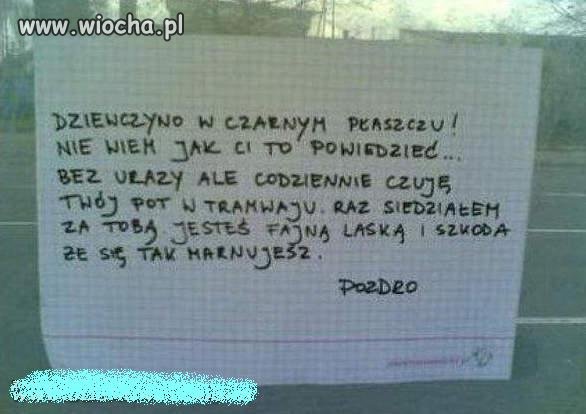 www.wiocha.pl
DZIEWCZYNO W CZARNYM PŁASZCZU!
NIE WIEM JAK CI TO POWIEDZIEĆ...
BEZ URAZY ALE CODZIENNIE CZUJĘ
TWÓJ POT W TRAMWAJU. RAZ SIEDZIAŁEM
ZA TOBĄ JESTEŚ FAJNĄ LASKĄ I SZKODA
ŻE SIĘ TAK MARNUJESZ.
POZDRO